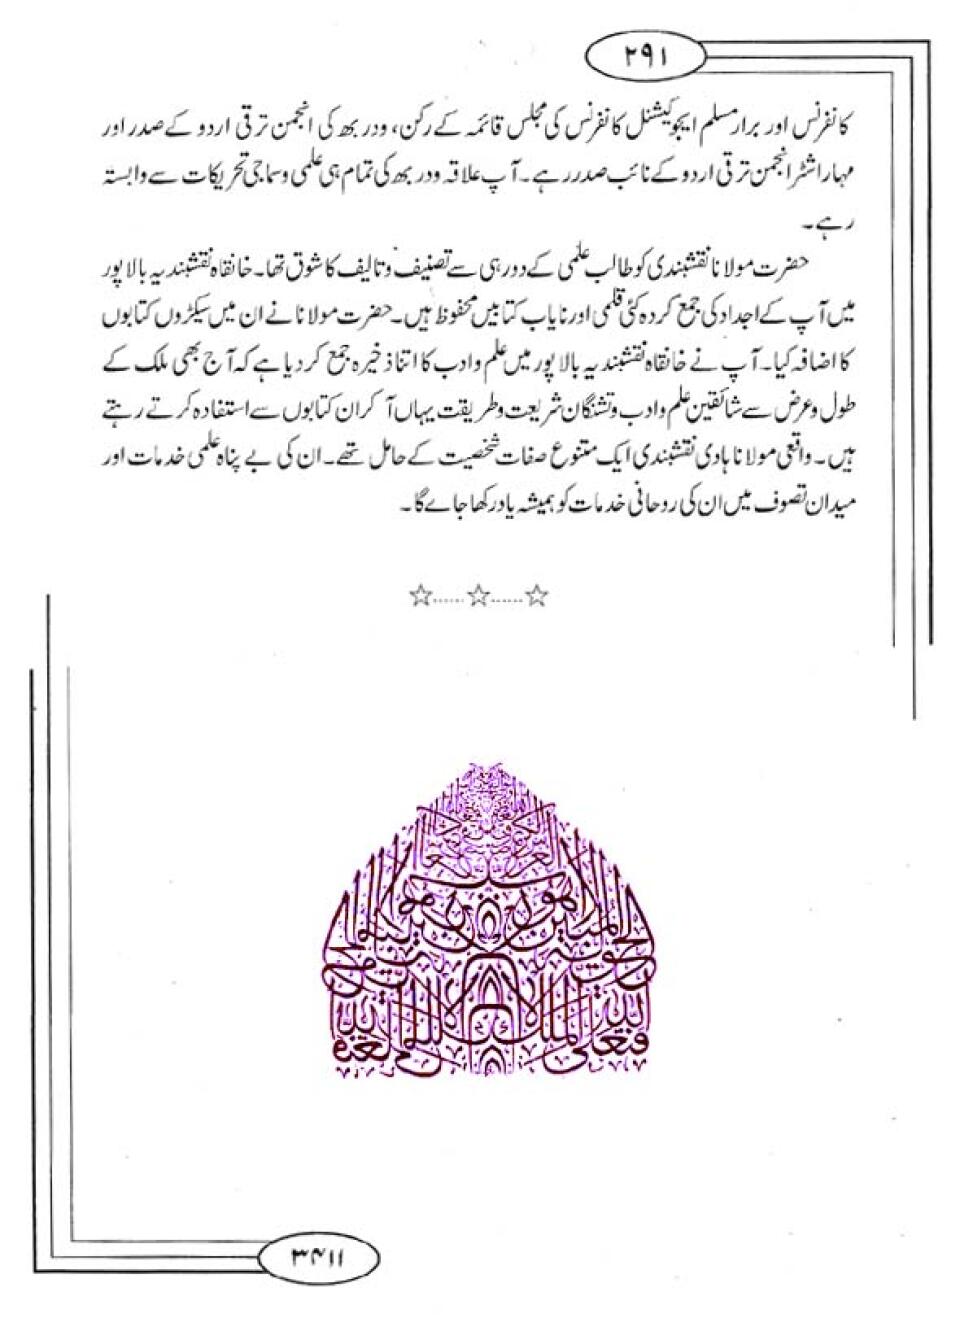 ۲۹۱
کانفرنس اور برار مسلم ایجوکیشنل کانفرنس کی مجلس قائمہ کے رکن، ودربھ کی انجمن ترقی اردو کے صدر اور
مہاراشٹر انجمن ترقی اردو کے نائب صدر رہے۔ آپ علاقہ ودربھ کی تمام ہی علمی و سماجی تحریکات سے وابستہ
رہے۔
حضرت مولانا نقشبندی کو طالب علمی کے دور ہی سے تصنیف و تالیف کا شوق تھا۔ خانقاہ نقشبندیہ بالاپور
میں آپ کے اجداد کی جمع کردہ کئی قلمی اور نایاب کتابیں محفوظ ہیں۔ حضرت مولانا نے ان میں سیکڑوں کتابوں
کا اضافہ کیا۔ آپ نے خانقاہ نقشبندیہ بالاپور میں علم و ادب کا اتنا ذخیرہ جمع کر دیا ہے کہ آج بھی ملک کے
طول و عرض سے شائقین علم و ادب و تشنگان شریعت و طریقت یہاں آ کر ان کتابوں سے استفادہ کرتے رہتے
ہیں۔ واقعی مولانا ہادی نقشبندی ایک متنوع صفات شخصیت کے حامل تھے۔ ان کی بے پناہ علمی خدمات اور
میدان تصوف میں ان کی روحانی خدمات کو ہمیشہ یاد رکھا جائے گا۔
☆......☆......☆
فتعالى الله الملك